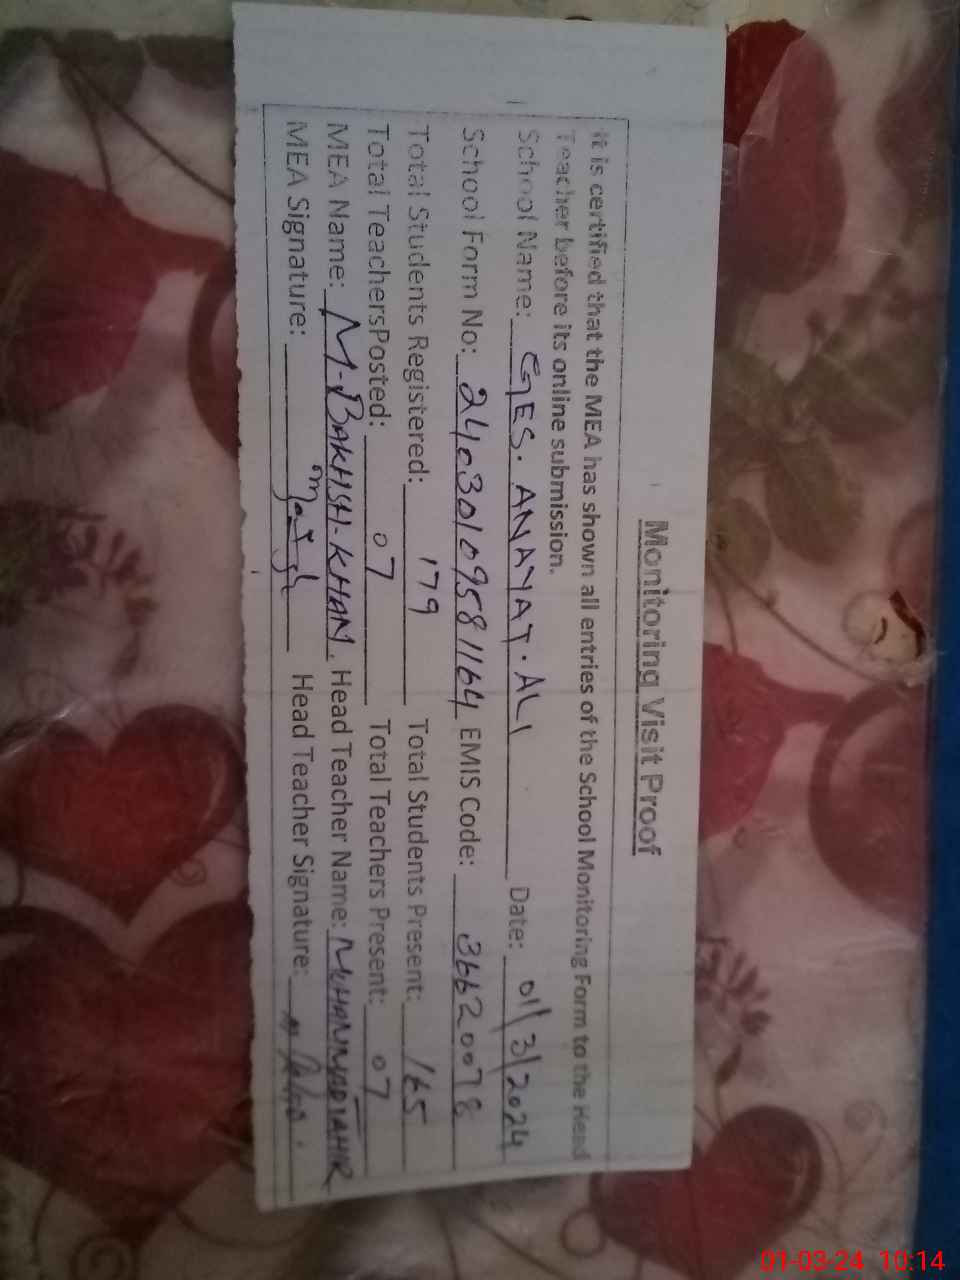 Monitoring Visit Proof
It is certified that the MEA has shown all entries of the School Monitoring Form to the Head
Teacher before its online submission.
School Name: GES. ANAYAT. ALI Date: 01/3/2024
School Form No: 24030109581164 EMIS Code: 36620078
Total Students Registered: 179 Total Students Present: 165
Total TeachersPosted: 07 Total Teachers Present: 07
MEA Name: M-BAKHSH-KHAN. Head Teacher Name: MUHAMMAD TAHIR
MEA Signature: Head Teacher Signature:
01-03-24 10:14